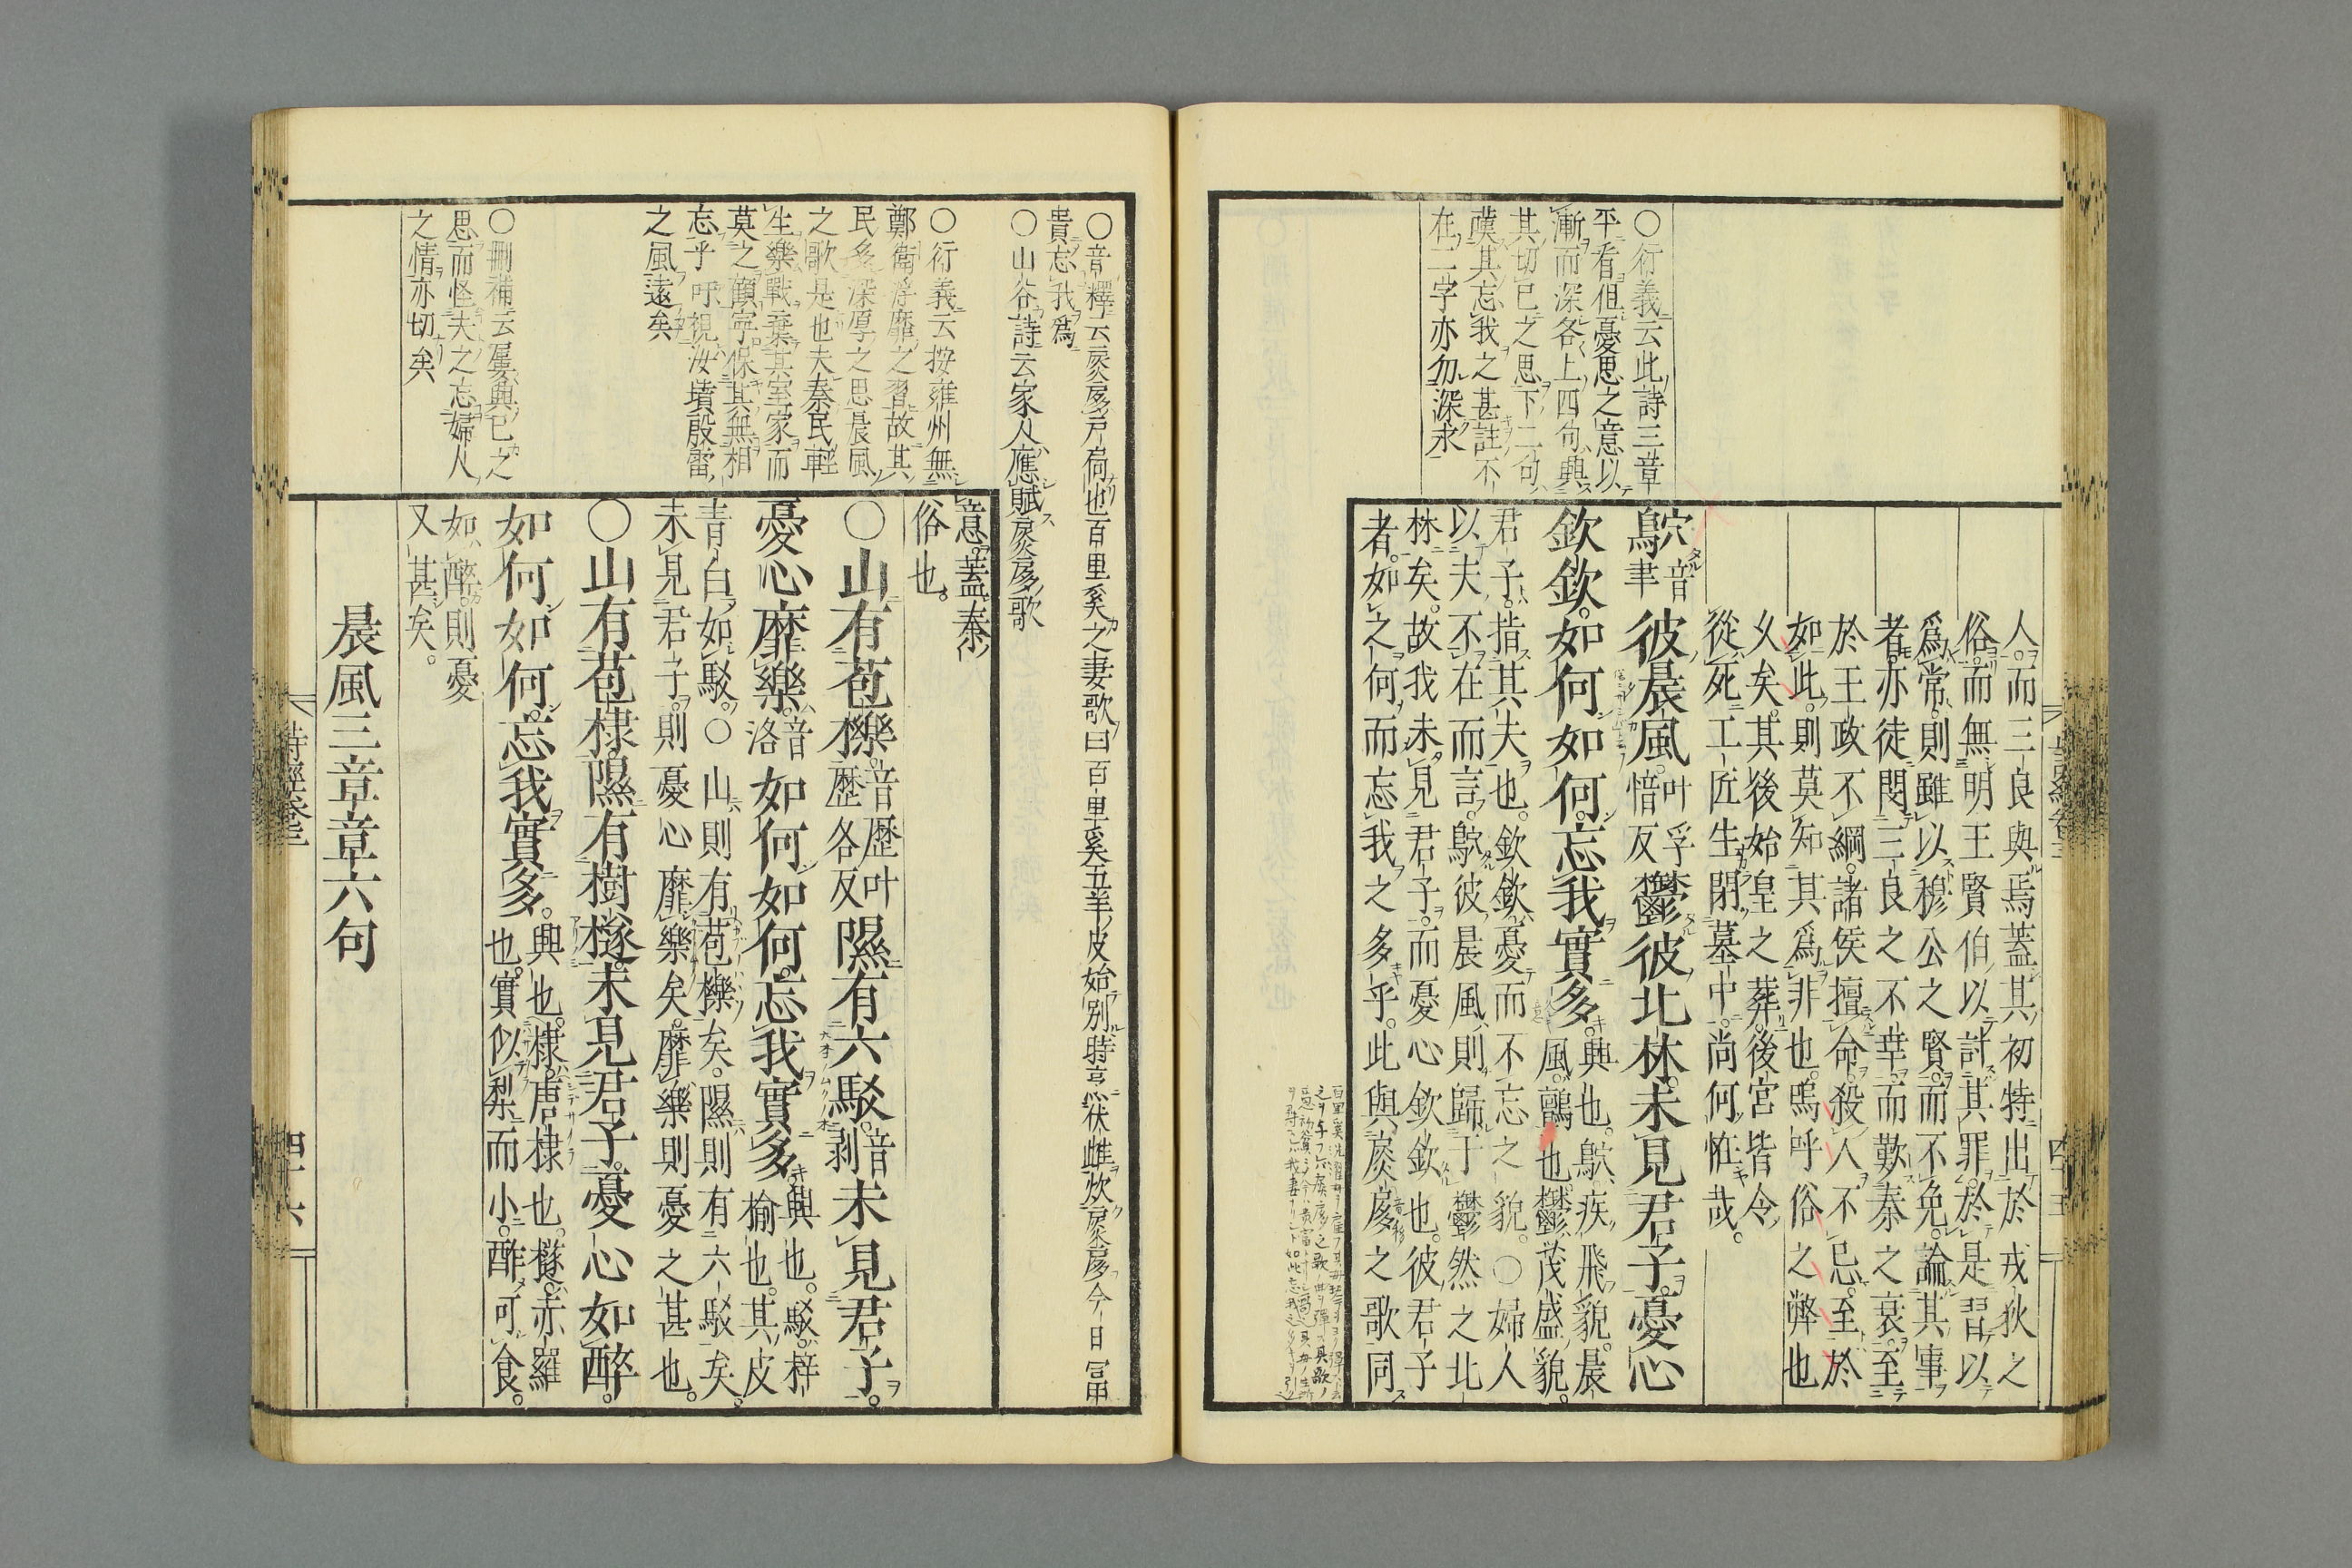 人。而三良與焉。蓋其初特出於戎狄之
俗。而無明王賢伯以討其罪。於是習以
爲常。則雖以穆公之賢。而不免。論其事
者。亦徒閔三良之不幸。而歎秦之衰。至
於王政不綱。諸侯擅命。殺人不忌。至於
如此。則莫知其爲非也。嗚呼俗之弊也
乆矣。其後始皇之葬。後宮皆令
從死。工匠生閉墓中。尚何恠哉。
〇衍義云此詩三章
平看但憂思之意以
漸而深各上四句興
其切已之思下二句
嘆其忘我之甚註不
在二字亦勿深求
鴥音聿彼晨風。叶孚愔反鬱彼北林。未見君子。憂心
欽欽。如何如何。忘我實多。興也。鴥疾飛貌。晨風。鸇也。鬱茂盛貌。
君子。指其夫也。欽欽憂而不忘之貌。〇婦人
以夫不在而言。鴥彼晨風。則歸于鬱然之北
林矣。故我未見君子。而憂心欽欽也。彼君子
者。如之何而忘我之多乎。此與扊扅之歌同
〇音釋云扊扅戶扃也百里奚之妻歌曰百里奚五羊皮始別時烹伏雌炊扊扅今日富
貴忘我爲
〇山谷詩云家人應賦扊扅歌
〇衍義云按雍州無
鄭衛浮靡之習故其
民多深厚之思晨風
之歌是也夫秦民輕
生樂戰棄其室家而
莫之顧寧保其無相
忘乎呼視汝墳殷雷
之風遠矣
〇刪補云屢與已之
思而怪夫之忘婦人
之情亦切矣
意。蓋秦
俗也。
〇山有苞櫟。音歷叶歷各反隰有六駁。音剥未見君子。
憂心靡樂。音洛如何如何。忘我實多。興也。駁。梓榆也。其皮
青白如駁。〇山則有苞櫟矣。隰則有六駁矣。
未見君子。則憂心靡樂矣。靡樂則憂之甚也。
〇山有苞棣。隰有樹檖。未見君子。憂心如醉。
如何如何。忘我實多。興也。棣。唐棣也。檖。赤羅也。實似梨而小。酢可食。
如醉。則憂
又甚矣。
晨風三章章六句